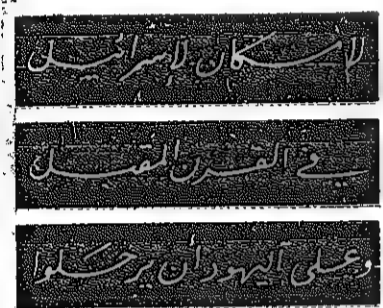 لا مكان لإسرائيل
في القرن المقبل
وعلى اليهود ان يرحلوا